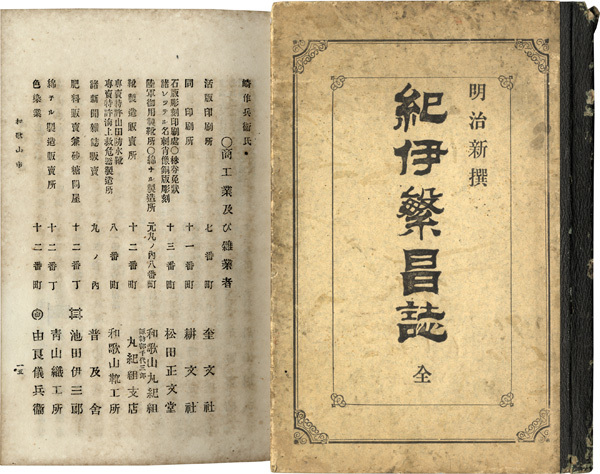 明治新撰
紀伊繁昌誌
全
○商工業及び雑業者
活版印刷所 七番町 奎文社
同印刷所 十一番町 耕文社
石版彫刻印刷處○株券免狀
諸レツテル名刺肖像銅版彫刻 十三番町 松田正文堂
陸軍御用製靴所○綿チル製造所 元九ノ內八番町 和歌山丸紀組
靴製造販賣所 十二番町 丸紀組支店
專賣特許山田防水靴
專賣特許海上救危器製造所 八番町 和歌山靴工所
諸新聞雜誌販賣 九ノ內 普及舍
肥料販賣兼砂糖問屋 十二番丁 池田伊三郎
綿チル製造販賣所 十二番丁 青山織工所
色染業 十二番丁 由良儀兵衞
和歌山市
一五